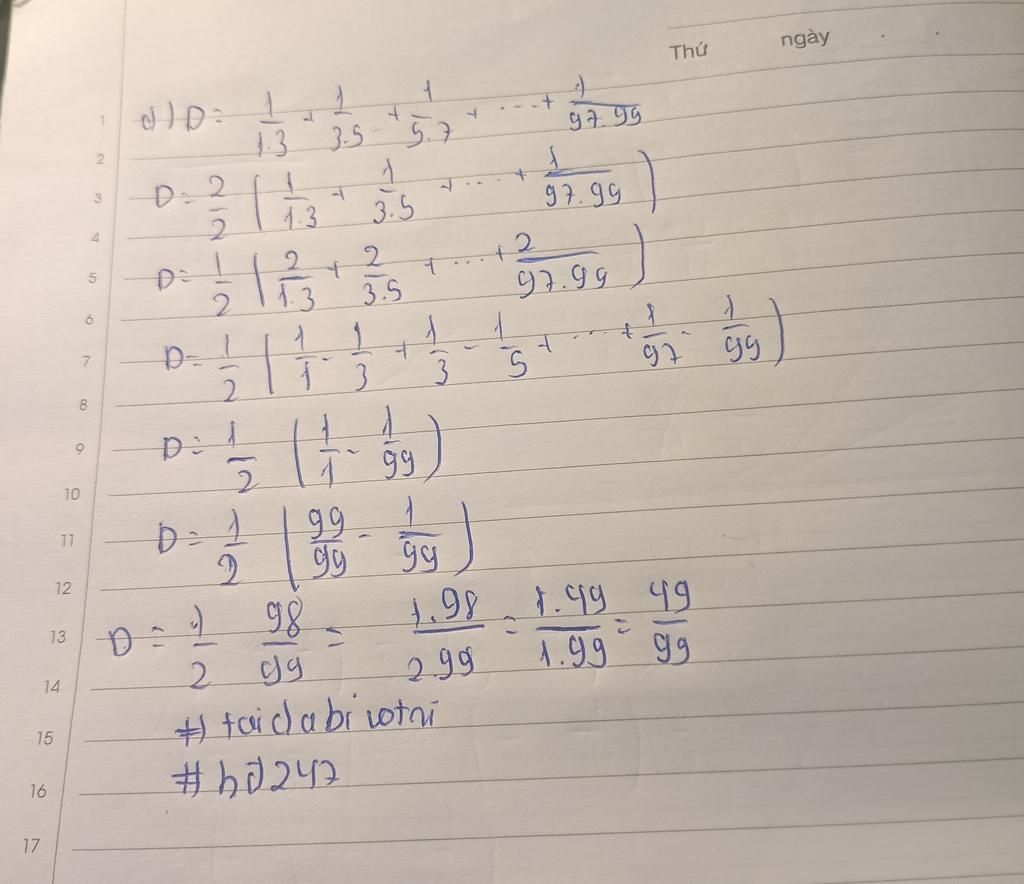 Thứ ngày . .
1 d) D = 1/1.3 + 1/3.5 + 1/5.7 + ... + 1/97.99
2
3 D = 2/2 ( 1/1.3 + 1/3.5 + ... + 1/97.99 )
4
5 D = 1/2 ( 2/1.3 + 2/3.5 + ... + 2/97.99 )
6
7 D = 1/2 ( 1/1 - 1/3 + 1/3 - 1/5 + ... + 1/97 - 1/99 )
8
9 D = 1/2 ( 1/1 - 1/99 )
10
11 D = 1/2 ( 99/99 - 1/99 )
12
13 D = 1/2 98/99 = 1.98/2.99 = 1.49/1.99 = 49/99
14
15
16 # hđ247
17